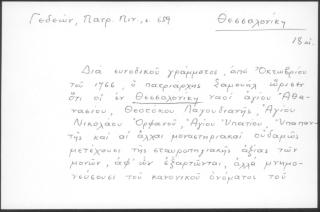 Γεδεών, Πατρ. Πιν., σ. 659
Θεσσαλονίκη
18 αἰ.
Διά συνοδικοῦ γράμματος, ἀπό Ὀκτωβρίου
τοῦ 1766, ὁ πατριάρχης Σαμουήλ ὥρισεν
ὅτι οἱ ἐν Θεσσαλονίκῃ ναοί ἁγίου Ἀθα-
νασίου, Θεοτόκου Λαγουδιανῆς, Ἁγίου
Νικολάου Ὀρφανοῦ, Ἁγίου Ὑπατίου Ὑπαπαν-
τῆς καί αἱ ἄλλαι μοναστηριακαί οὐδαμῶς
μετέχουσι τῆς σταυροπηγιακῆς ἀξίας τῶν
μονῶν, ἀφ' ὧν ἐξαρτῶνται, ἀλλά μνημο-
νεύουσι τοῦ κανονικοῦ ὀνόματος τοῦ